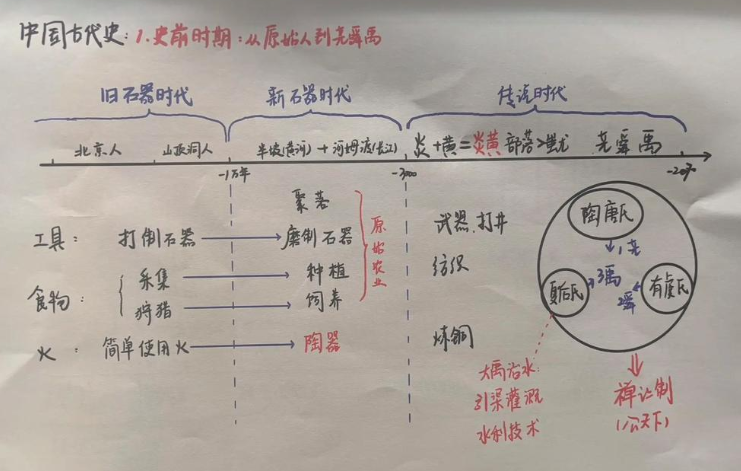 中国古代史：1.史前时期：从原始人到尧舜禹
旧石器时代 新石器时代 传说时代
北京人 山顶洞人 半坡(黄河)+河姆渡(长江) 炎+黄=炎黄部落>蚩尤 尧舜禹
-1万年 -3000 -2070
聚落
工具： 打制石器 → 磨制石器 武器、打井
原始农业
食物： 采集 → 种植 纺织
狩猎 → 饲养
火： 简单使用火 → 陶器 炼铜
陶唐氏
1尧
夏后氏 3禹 2舜 有虞氏
大禹治水
引渠灌溉
水利技术
禅让制
(公天下)